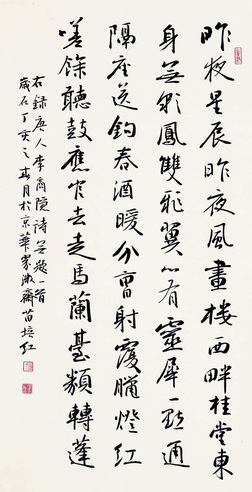 昨夜星辰昨夜風畫樓西畔桂堂東
身無彩鳳雙飛翼心有靈犀一點通
隔座送鈎春酒暖分曹射覆臘燈紅
嗟餘聽鼓應官去走馬蘭臺類轉蓬
右錄唐人李商隱詩無題一首
歲在丁亥之春月於京華寒淑齋苗培紅